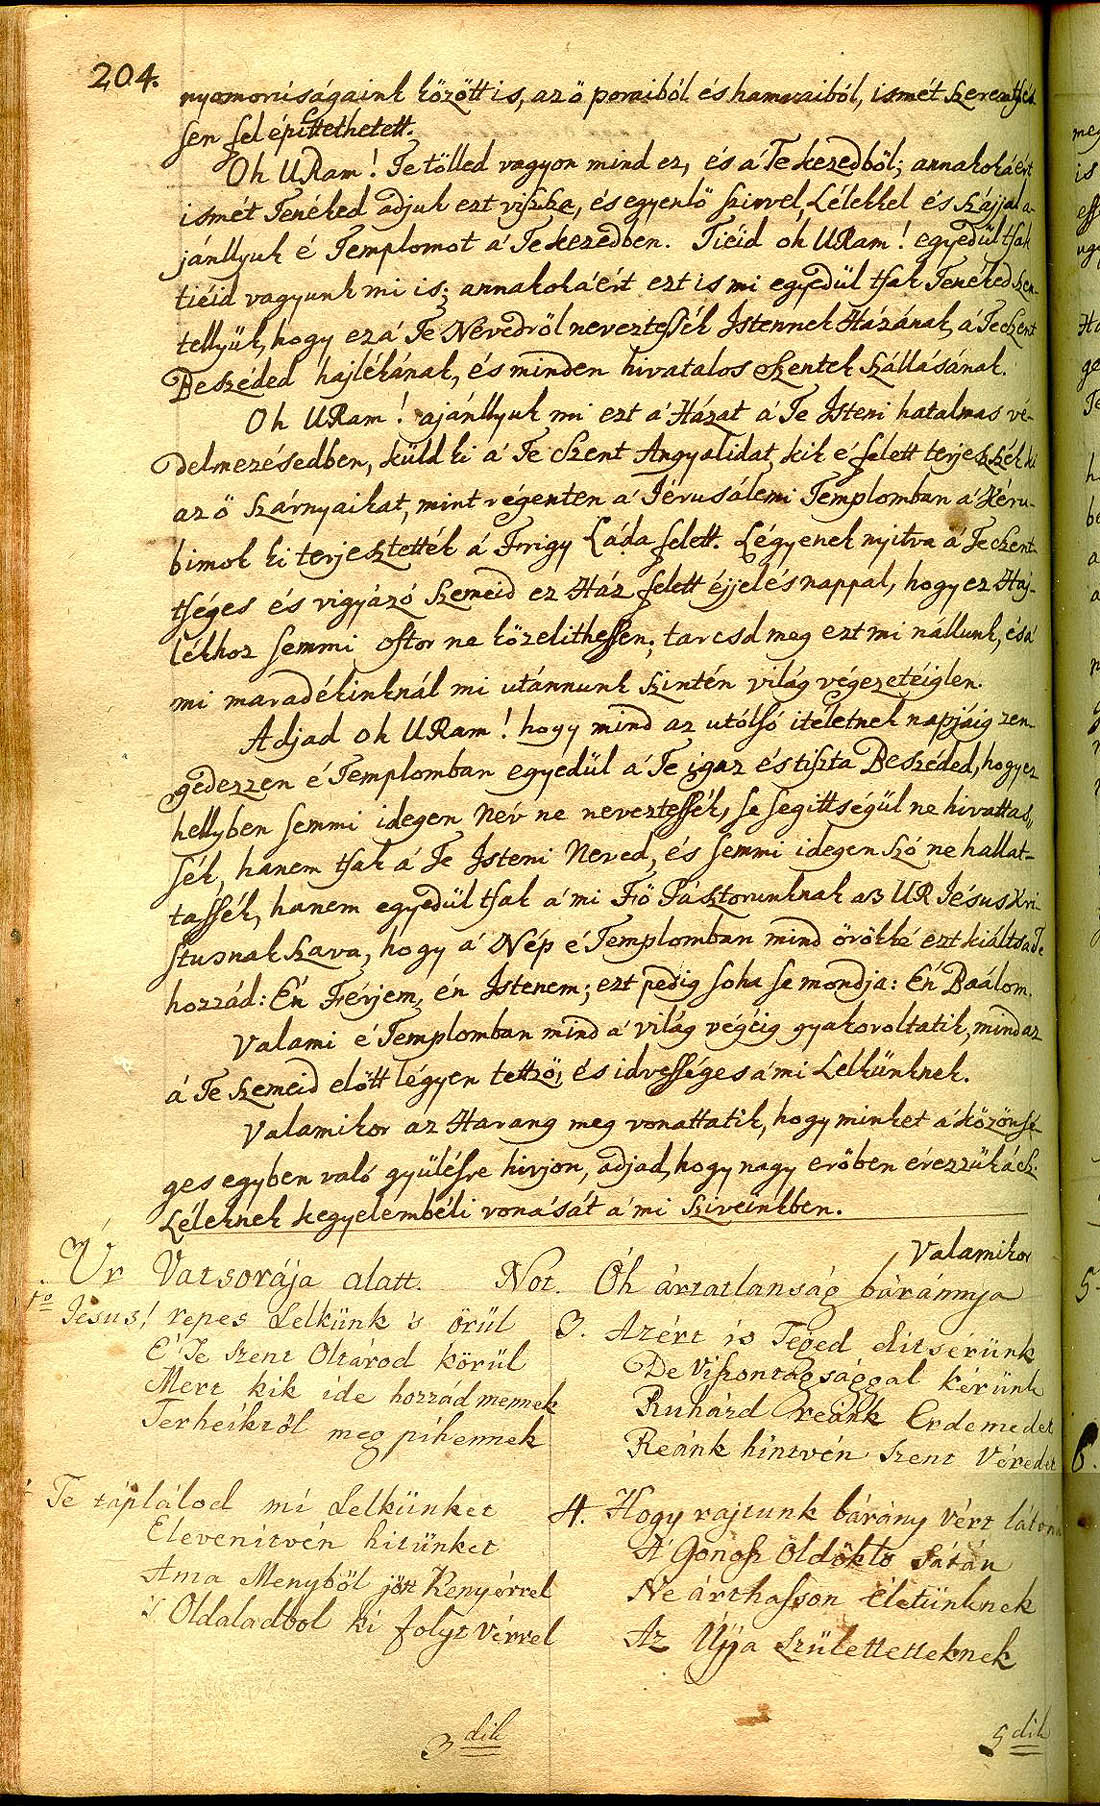 204.
nyomoruságaink között is, az ő poraiból és hamvaiból, ismét szerentsés
sen fel építtethetett.
Oh URam! Te tölled vagyon mind ez, és á Te kezedből; annakokáért
ismét Tenéked adjuk ezt viszsza, és egyenlő szivvel, Lélekkel és szájjal a-
jánllyuk é Templomot á Te kezedben. Tiéid oh URam! egyedül tsak
tiéid vagyunk mi is; annakokáért ezt is mi egyedül tsak Tenéked szen-
tellyük, hogy ez á Te Nevedről neveztessék Istennek Házának, á Te szent
Beszéded hajlékának, és minden hivatalos Szentek szállásának.
Oh URam! ajánllyuk mi ezt á Házat á Te Isteni hatalmas vé-
delmezésedben, küld ki á Te szent Angyalidat, kik é felett terjeszszék ki
az ő szárnyaikat, mint régenten á Jérusálemi Templomban á Kéru-
bimok ki terjesztették á Frigy Láda felett. Légyenek nyitva á Te szent-
tséges és vigyázó szemeid ez Ház felett éjjel és nappal, hogy ez Haj-
lékhoz semmi ostor ne közelithessen; tartsd meg ezt mi nállunk, és á
mi maradékinknál mi utánnunk szintén világ végezetéiglen.
Adjad oh URam! hogy mind az utólsó itéletnek napjáig zen-
gedezzen é Templomban egyedül á Te igaz és tiszta Beszéded, hogy ez
hellyben semmi idegen Név ne neveztessék, se segittségül ne hivattas,,
sék, hanem tsak á Te Isteni Neved, és semmi idegen szó ne hallat-
tassék, hanem egyedül tsak á mi Fő Pásztorunknak az UR Jésus Xri-
stusnak szava, hogy á Nép é Templomban mind örökké ezt kiáltsa Te
hozzád: Én Férjem, én Istenem; ezt pedig soha se mondja: Én Baálom.
Valami é Templomban mind á világ végéig gyakoroltatik, mind az
á Te szemeid előtt légyen tettző, és idvességes á mi Lelkünknek.
Valamikor az Harang meg vonattatik, hogy minket á közönsé
ges egyben való gyülésre hivjon, adjad, hogy nagy erőben érezzük á sz.
Léleknek kegyelembéli vonását á mi sziveinkben.
Valamikor
Úr Vatsorája alatt. Not. Óh ártatlanság báránnya
1o Jesus! repes Lelkünk 's örül
E' Te szent Oltárod körül
Mert kik ide hozzád mennek
Terheiktől meg pihennek
Te táplálod mi Lelkünket
Elevenitvén hitünket
Ama Menyből jött Kenyérrel
's Oldaladbol ki folyt vérrel
3dik
3. Azért is Téged ditsérünk
De viszontagsággal kérünk
Ruházd reánk Érdemedet
Reánk hintvén szent Véredet
4. Hogy rajtunk bárány vért látván
A' Gonosz öldöklő Sátán
Ne árthasson életünknek
Az Újja születtetteknek
5dik